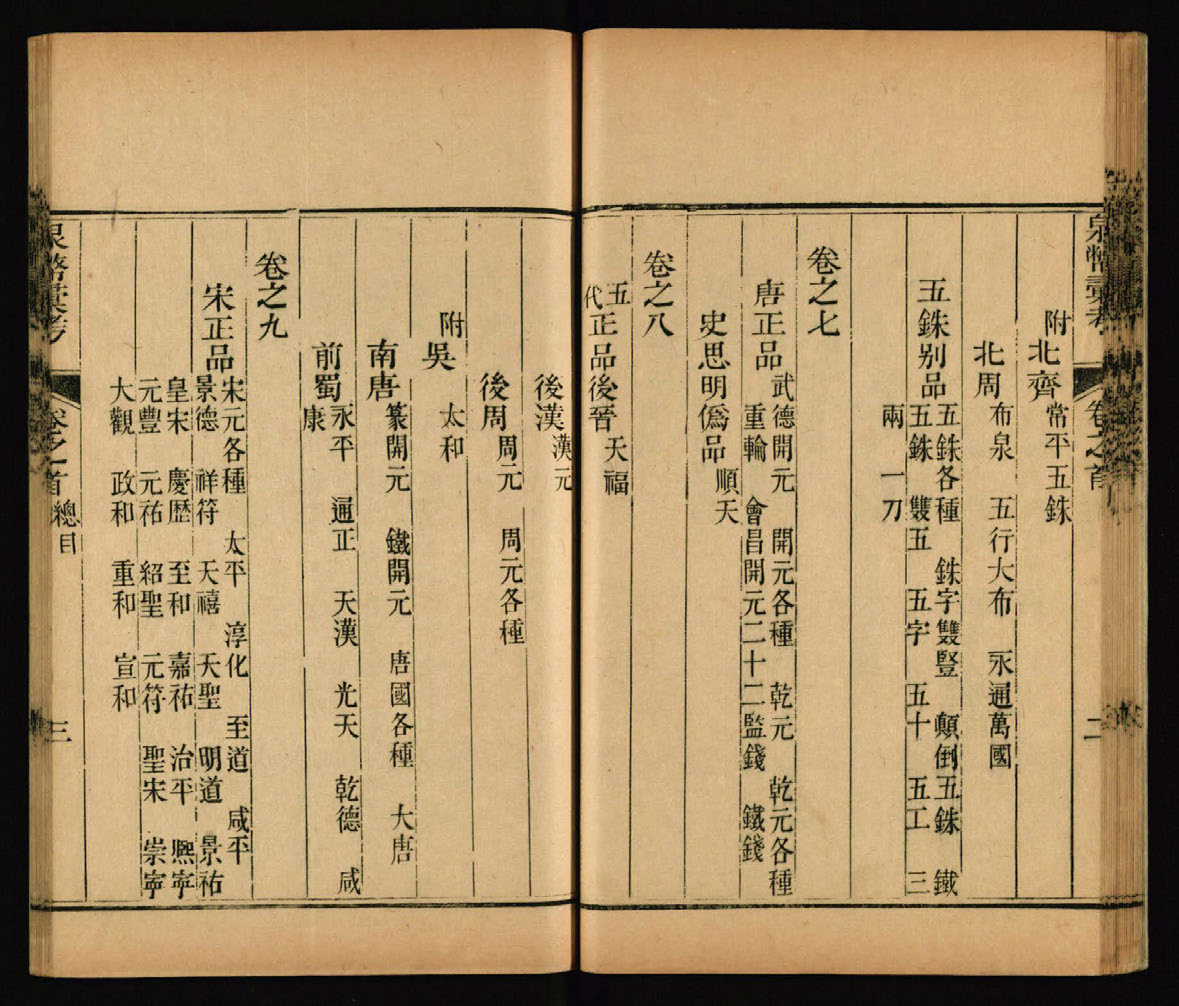 泉幣彙考 卷之首 二
附北齊 常平五銖
北周 布泉 五行大布 永通萬國
五銖别品 五銖各種 銖字雙豎 顛倒五銖 鐵
五銖 雙五 五字 五十 五工 三
兩 一刀
卷之七
唐正品 武德開元 開元各種 乾元 乾元各種
重輪 會昌開元二十二監錢 鐵錢
史思明僞品 順天
卷之八
五代正品後晉 天福
後漢 漢元
後周 周元 周元各種
附吳 太和
南唐 篆開元 鐵開元 唐國各種 大唐
前蜀 永平 通正 天漢 光天 乾德 咸
康
卷之九
宋正品 宋元各種 太平 淳化 至道 咸平
景德 祥符 天禧 天聖 明道 景祐
皇宋 慶歴 至和 嘉祐 治平 熈寧
元豐 元祐 紹聖 元符 聖宋 崇寧
大觀 政和 重和 宣和
泉幣彙考 卷之首 總目 三